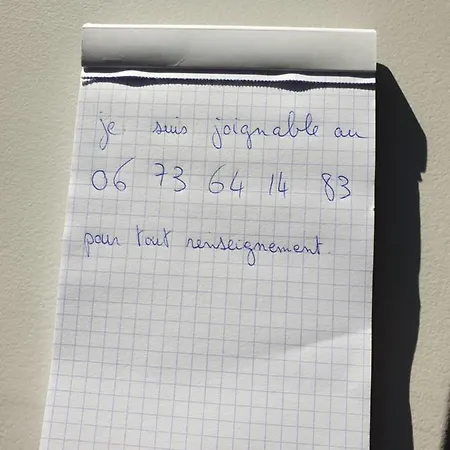 je suis joignable au
06 73 64 14 83
pour tout renseignement.